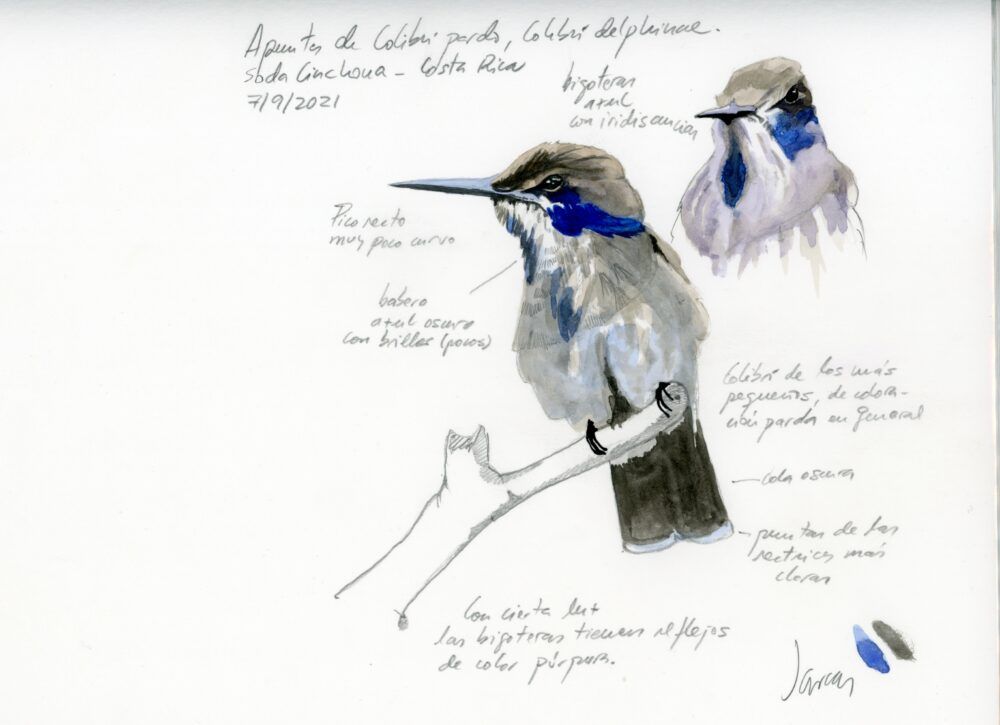 Apuntes de Colibrí pardo, Colibri delphinae.
Soda Cinchona - Costa Rica
7/9/2021
bigoteras
azul
con iridiscencias
Pico recto
muy poco curvo
babero
azul oscuro
con brillos (pocos)
Colibrí de los más
pequeños, de colora-
ción parda en general
cola oscura
puntas de las
rectrices más
claras
Con cierta luz
las bigoteras tienen reflejos
de color púrpura.